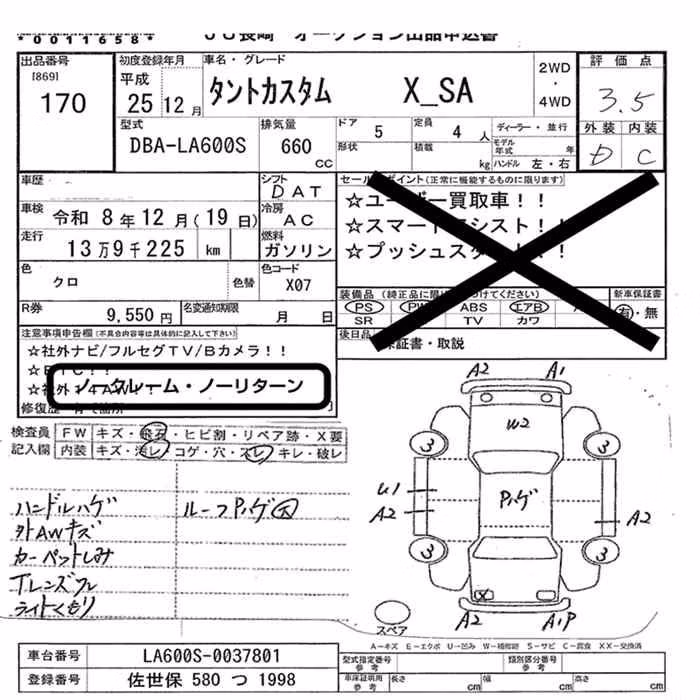 *0011658*
JU長崎 オークション出品申込書
出品番号
[869]
170
初度登録年月
平成
25 12月
車名・グレード
タントカスタム X_SA
2WD
・
4WD
評価点
3.5
外装 内装
D C
型式
DBA-LA600S
排気量
660
CC
ドア 5
定員 4 人
形状
積載 kg
ディーラー・並行
モデル年式 年
ハンドル 左・右
車歴
シフト
DAT
車検 令和 8年12月(19日)
冷房
AC
走行 13万9千225 km
燃料
ガソリン
色
クロ
色替
色コード
X07
R券
9,550円
名変通知期限
月 日
セールスポイント(正常に機能するものに限ります)
☆ユーザー買取車!!
☆スマートアシスト!!
☆プッシュスタート!!
装備品(純正品に限り 付けてください)
PS PW ABS エアB
SR TV カワ
新車保証書
有・無
後日品
保証書・取説
注意事項申告欄(不具合内容等は具体的に記入して下さい)
☆社外ナビ/フルセグTV/Bカメラ!!
☆ETC!!
☆社外14AW!!
ノークレーム・ノーリターン
修復歴 有で箇所
検査員
記入欄
FW キズ・飛石・ヒビ割・リペア跡・X要
内装 キズ・汚レ・コゲ・穴・スレ・キレ・破レ
ハンドルハゲ
外AWキズ
カーペットしみ
Tレンズワレ
ライトくもり
ルーフPハゲ大
A2 A1
W2
3 3
U1
A2
Pハゲ
A2
3 3
X
A2 A1P
スペア
A=キズ E=エクボ U=凹み W=補修跡 S=サビ C=腐食 XX=交換済
車台番号 LA600S-0037801
登録番号 佐世保 580 つ 1998
型式指定番号
参考
類別区分番号
参考
車庫証明用
参考
長さ 幅 高さ